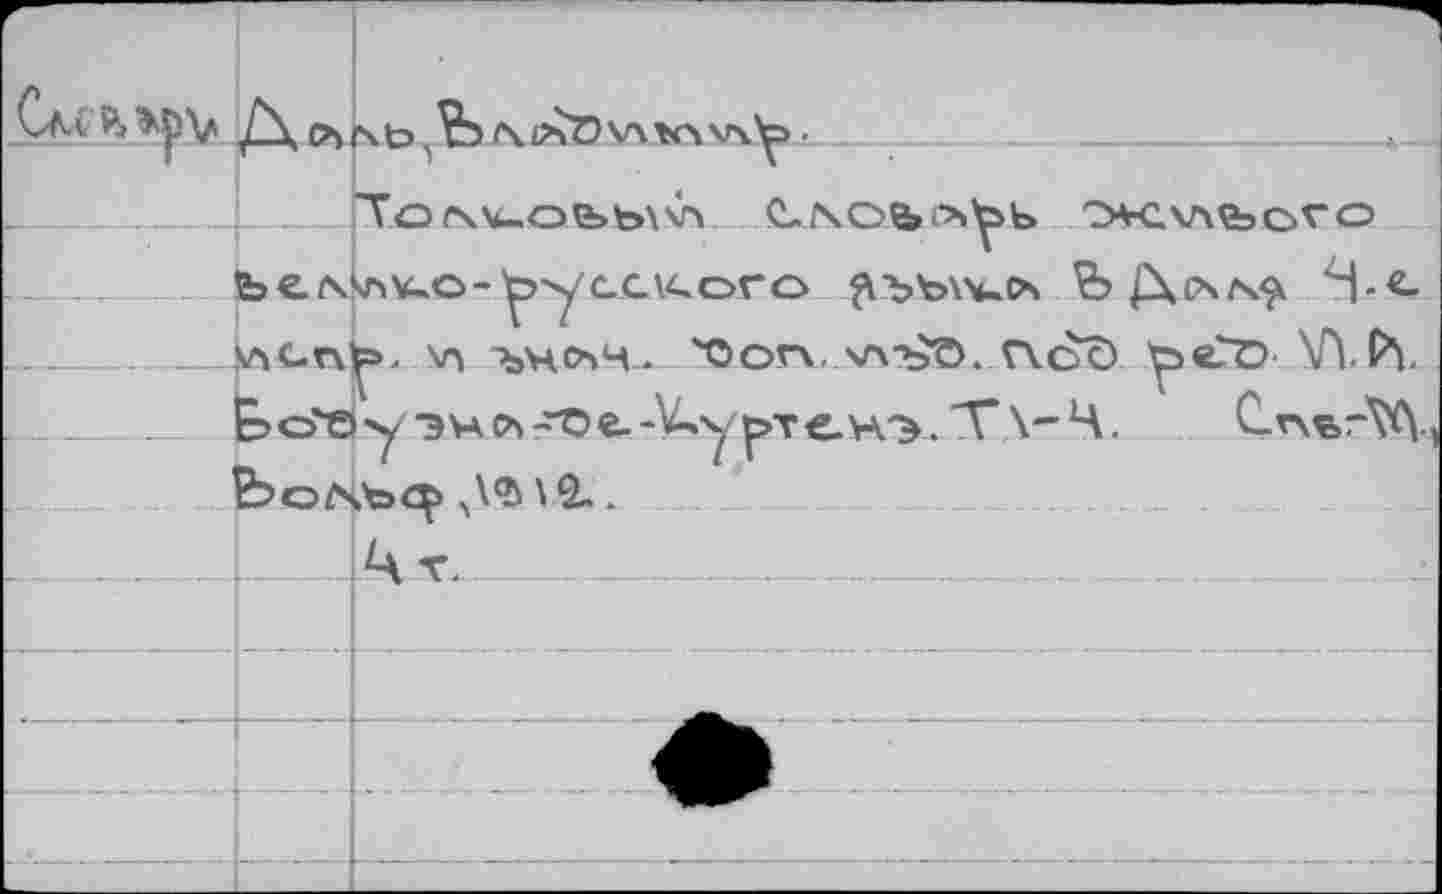 Словари Даль, Владимир.
Толковый словарь живого
велико-русского языка В Даля 4-е
испр. и знач. доп. изд. под ред. И.А.
Бодуэна-де-Куртенэ. Т 1-4. Спб-М.,
Вольф, 1912.
4 т.